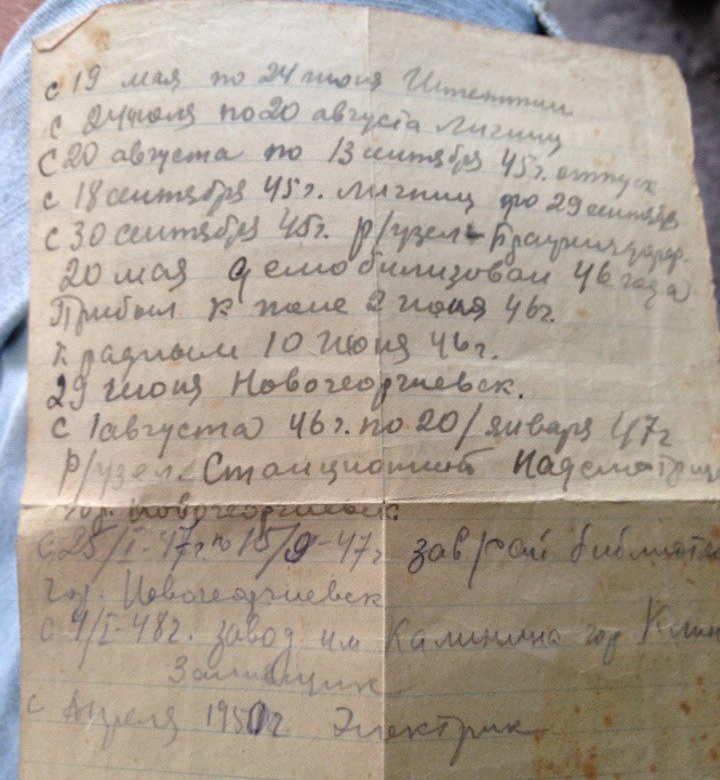 с 19 мая по 24 июля Штеттин
с 24 июля по 20 августа Лигниц
С 20 августа по 13 сентября 45г. отпуск
с 18 сентября 45г. Лигниц по 29 сентября
с 30 сентября 45г. р/узел
20 мая демобилизован 46 года
Прибыл к 2 июня 46г.
к родным 10 июня 46г.
29 июня Новогеоргиевск.
С 1 августа 46г. по 20/января 47г
Р/узел. Станционный Надсмотрщ
гор. Новогеоргиевск
С 25/I-47г. по 15/9-47г зав/рай библиоте
гор. Новогеоргиевск
с 4/I-48г. завод им Калинина гор
с Апреля 1950г. Электрик